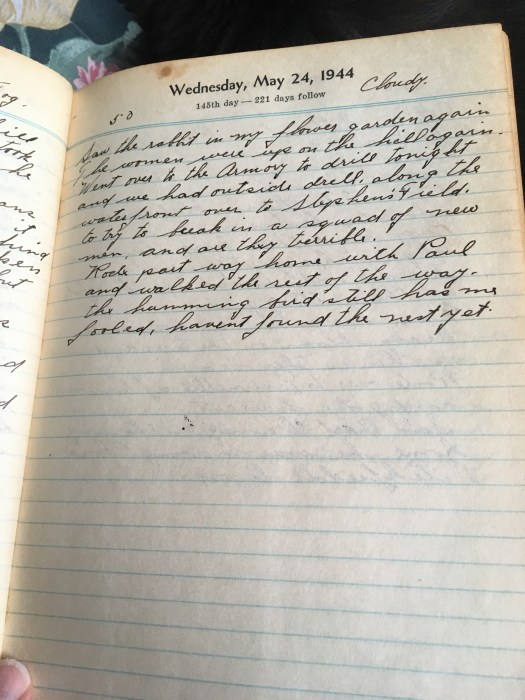 Wednesday, May 24, 1944
145th day — 221 days follow
Cloudy.
50
Saw the rabbit in my flower garden again
The women were up on the hill again.
Went over to the Armory to drill tonight
and we had outside drill, along the
waterfront over to Stephens Field.
to try to break in a squad of new
men, and are they terrible.
Rode part way home with Paul
and walked the rest of the way.
the humming bird still has me
fooled, havent found the nest yet.